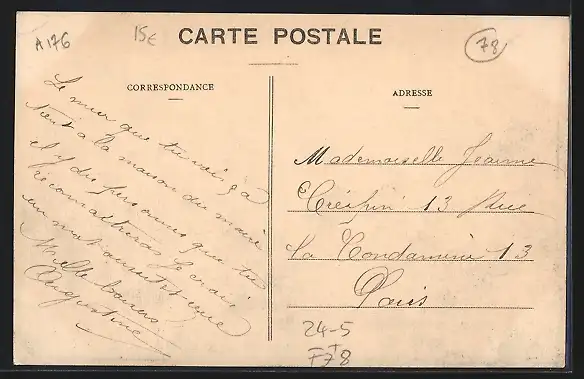 A 176
15€
CARTE POSTALE
78
CORRESPONDANCE
Le mur que tu vois çà
tient à la maison du maire
et y des personnes que tu
reconnaitras Je crois
Mille baisers
Augustine
ADRESSE
Mademoiselle Jeanne
Créspin 13 Rue
la Condamine 13
Paris
24-5
F78